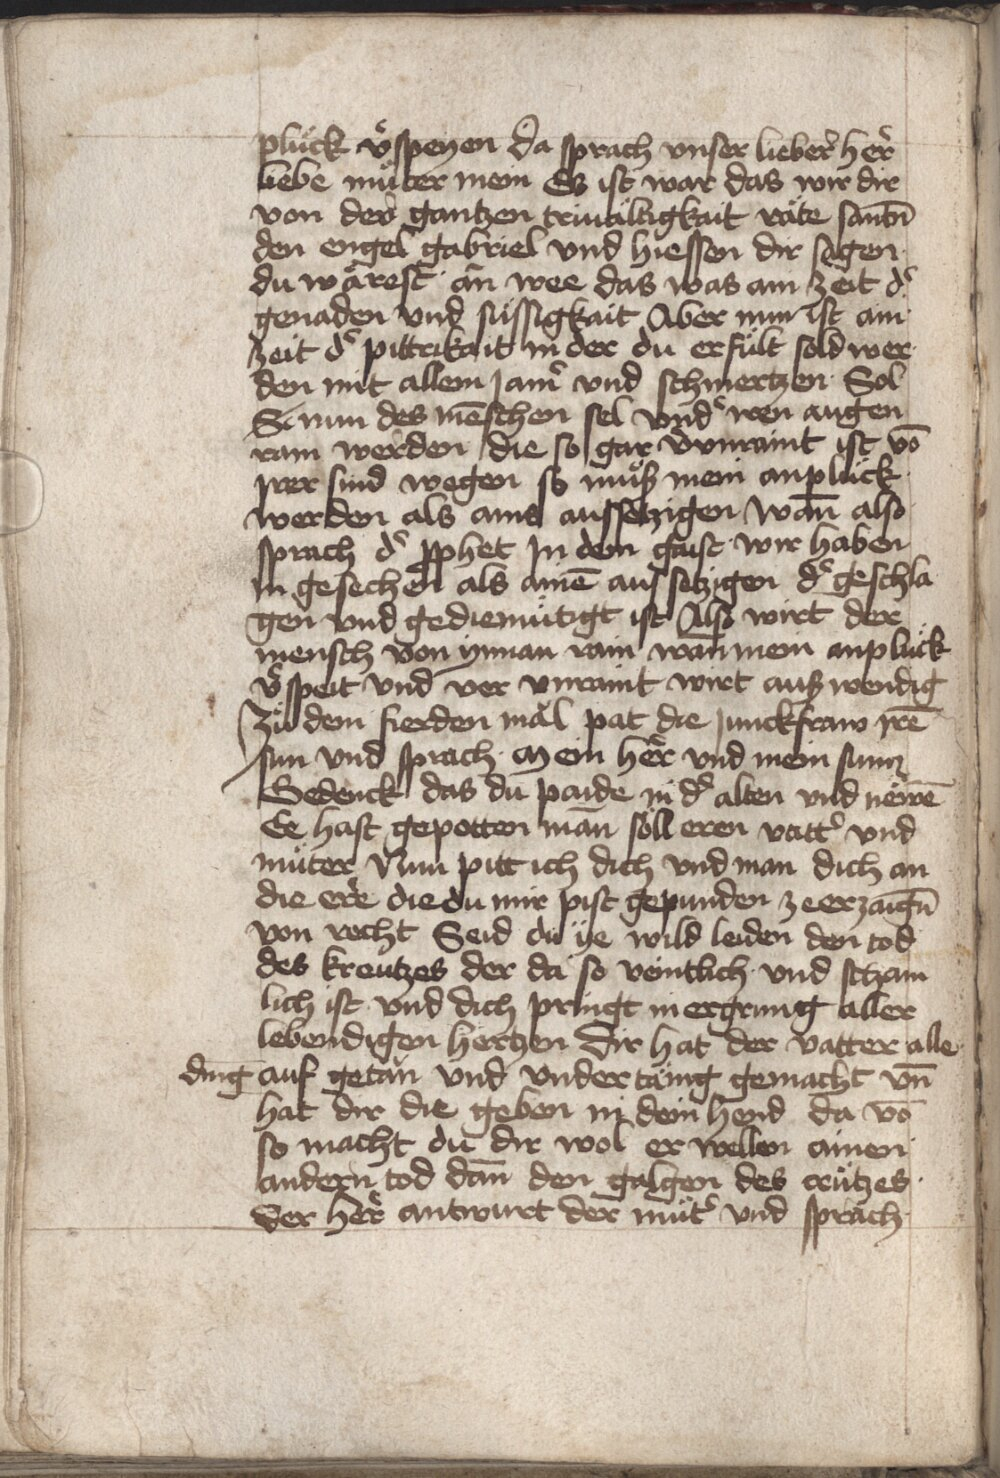 plück v̾speyen Da sprach vnser lieber̾ her̾
liebe muͤter mein Es ist war das wir dir
von der gantzen triualtigkait räte santn̄
den engel gabriel vnd hiessen dir sagen
du wärest an wee das was ain zeit d̾
genaden vnd süssigkait Aber nun ist ain
zeit d̾ pittrikait in der du erfült sold wer
den mit allem jam̾ vnd schmertzen Sol
S nun des mēschen sel vnd̾ wen augen
rain werden die so gar vnraint ist vō
irer sind wegen so muͦß mein anplück
werden als ains aussetzigen wān also
sprach d̾ pphet In dem gaist wir haben
in gesechen als ainē aussetzigen d̾ geschla
gen vnd gediemuͤtigt ist Also wirt der
mensch von ynnan rain wān mein anplück
v̾speit vnd ver vnraint wirt auß wendig
Zuͦ dem fierden mäl pat die junckfraw irē
sun vnd sprach Mein her̾ vnd mein sunn
Gedenck das du paide in d̾ alten vnd newē
Ee hast gepotten mān söll eren vatt̾ vnd
muͤter Nun pitt ich dich vnd man dich an
die ere̾ die du mir pist gepunden ze erzaign̄
von recht Seid du ye wild leiden den tod
des kreutzes der da so veintlich vnd scham
lich ist vnd dich pringt in ergrung aller
lebendigen hertzen Dir hat der vatter alle
ding auf getän vnd vndertänig gemacht vn̄
hat dir die geben in dein hend da vō
so macht du dir wol er wellen ainen
andern tod dān den galgen des crützes
Der her̾ antwurt der muͤt̾ vnd sprach